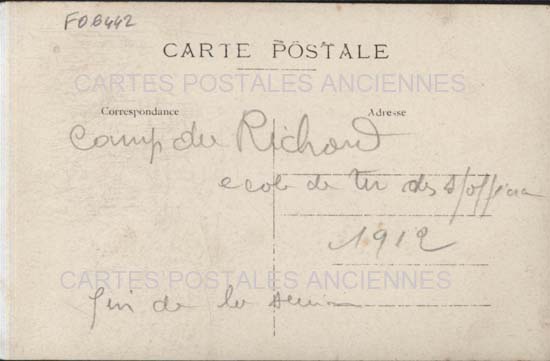 FO6442
CARTE POSTALE
CARTES POSTALES ANCIENNES
Correspondance
Adresse
Camp du Richard
ecole de tir des s/officiers
1912
CARTES POSTALES ANCIENNES
fin de la